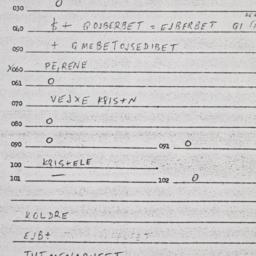 030 0
040 & + GOJBERBET = EJBERBET GI
050 + GMEBETOJSEDIBET
060 PE, RENE
061 0
070 VEJXE KRIS+N
080 0
090 0 091 0
100 KRIS+ELE
101 — 102 0
KOLDRE
EJB+